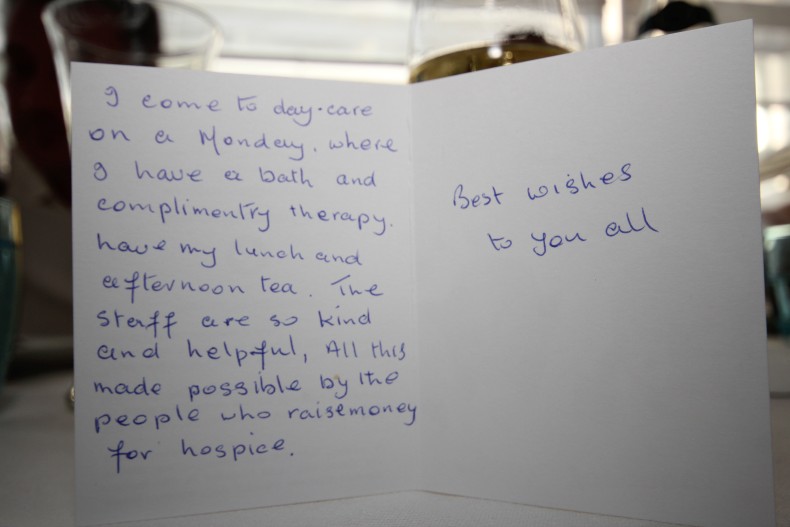 I come to day-care
on a Monday. where
I have a bath and
complimentry therapy.
have my lunch and
afternoon tea. The
staff are so kind
and helpful, All this
made possible by the
people who raisemoney
for hospice.
Best wishes
to you all